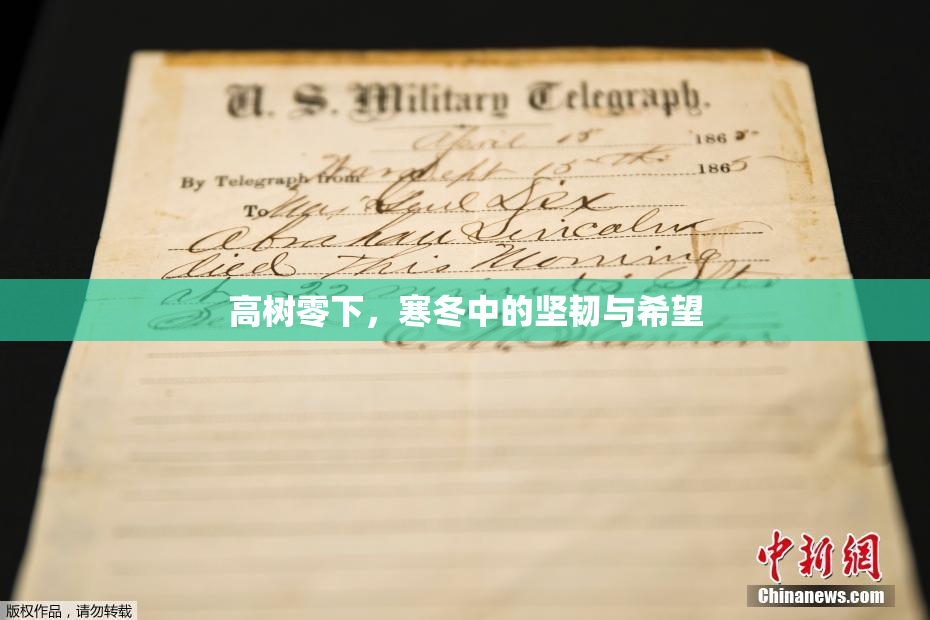 U. S. Military Telegraph.
April 15 1865
By Telegraph from War Dept 15th 1865
To Maj Genl Dix
Abraham Lincoln
died This Morning
at 22 minutes after
高树零下，寒冬中的坚韧与希望
E. M. Stanton
中新网
Chinanews.com
版权作品，请勿转载